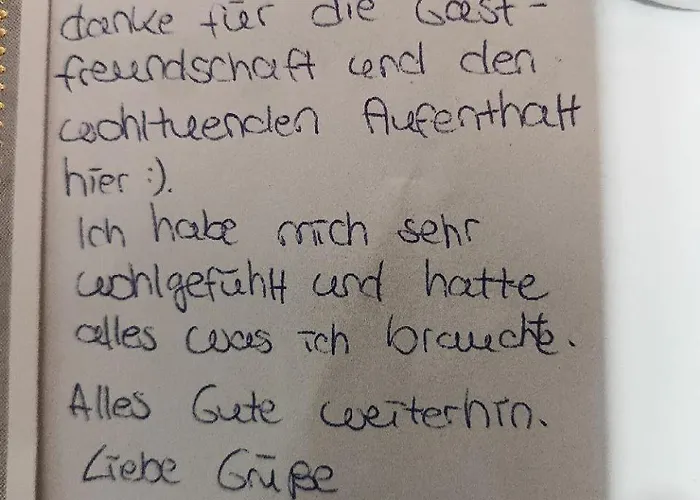 danke für die Gast-
freundschaft und den
wohltuenden Aufenthalt
hier :).
Ich habe mich sehr
wohlgefühlt und hatte
alles was ich brauchte.
Alles Gute weiterhin.
Liebe Grüße